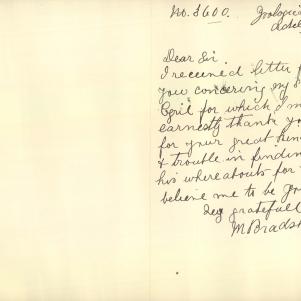 No. 3600. Zoologic
Adel
Dear Sir.
I received letter f
you concerning my S
Cyril for which I m
earnestly thank yo
for your great kin
& trouble in findin
his whereabouts for
believe me to be yo
Very gratefull
M Bradsh